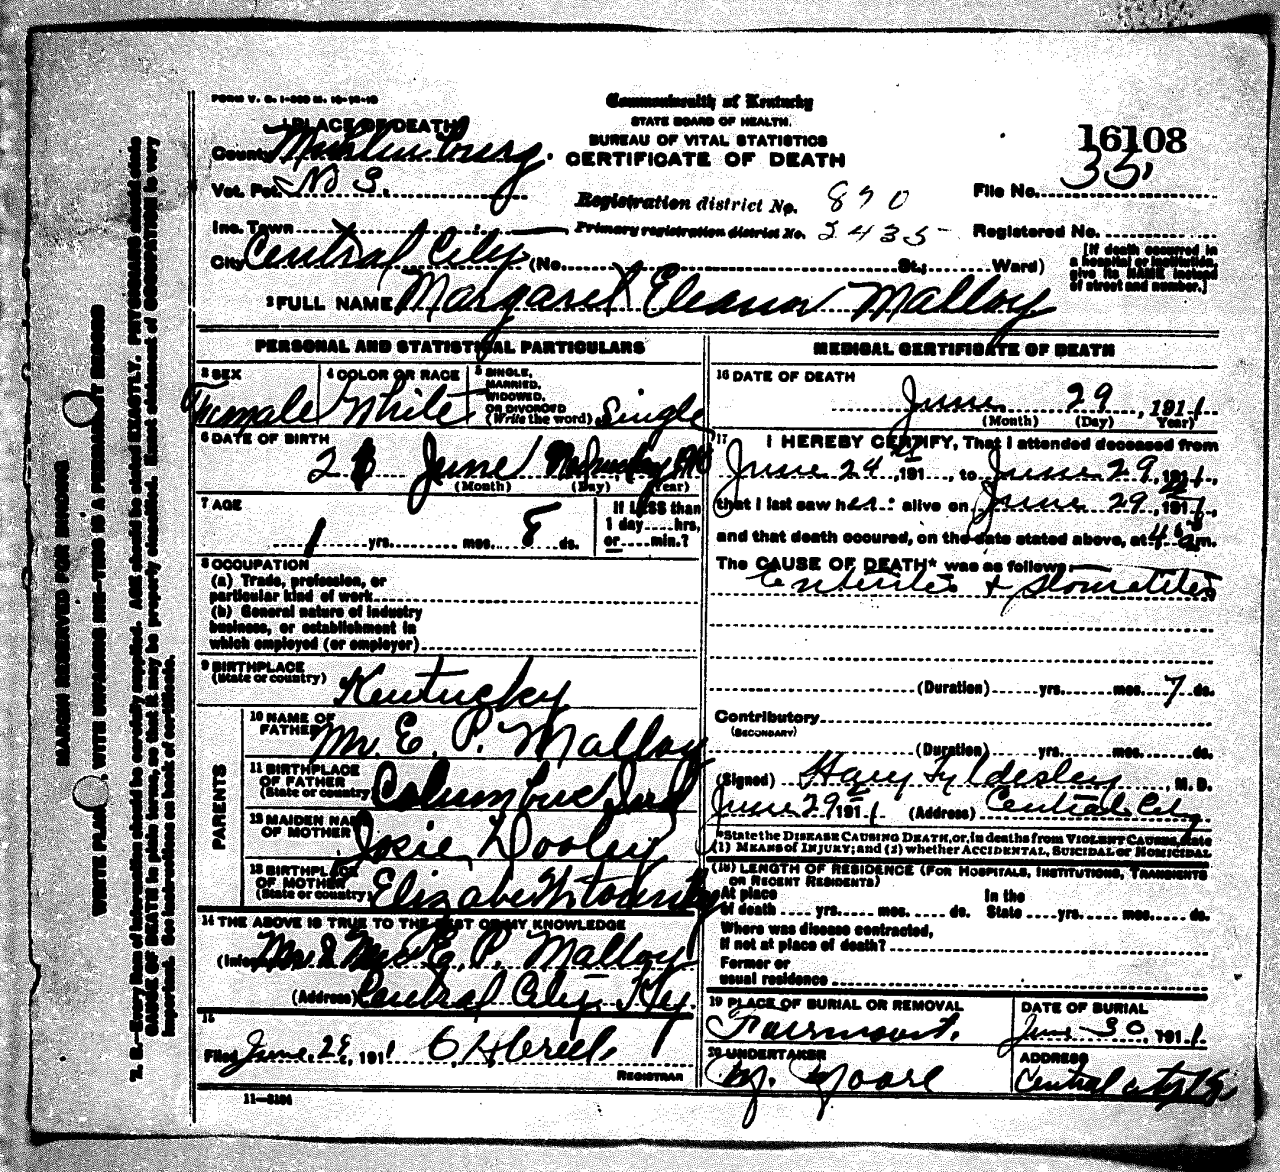 FORM V. S.
Commonwealth of Kentucky
STATE BOARD OF HEALTH.
BUREAU OF VITAL STATISTICS
CERTIFICATE OF DEATH
16108
1 PLACE OF DEATH
County Muhlenburg.
Vot. Pct.
File No. 35.
Registration district No. 890
Inc. Town
Primary registration district No. 2435
Registered No.
City Central City (No. St.; Ward)
[If death occurred in
a hospital or institution,
give its NAME instead
of street and number.]
2 FULL NAME Margaret Eleanor Malloy
PERSONAL AND STATISTICAL PARTICULARS
3 SEX Female
4 COLOR OR RACE White
5 SINGLE,
MARRIED,
WIDOWED,
OR DIVORCED
(Write the word) Single
6 DATE OF BIRTH
June
(Month) (Day) (Year)
7 AGE
1 yrs. mos. 8 ds.
If LESS than
1 day hrs.
or min.?
8 OCCUPATION
(a) Trade, profession, or
particular kind of work
(b) General nature of industry
business, or establishment in
which employed (or employer)
9 BIRTHPLACE
(State or country) Kentucky
PARENTS
10 NAME OF
FATHER Mr. E. P. Malloy
11 BIRTHPLACE
OF FATHER
(State or country) Columbus Ind
12 MAIDEN NAME
OF MOTHER Josie Dooley
13 BIRTHPLACE
OF MOTHER
(State or country) Elizabethtown Ky
14 THE ABOVE IS TRUE TO THE BEST OF MY KNOWLEDGE
(Informant) Mr & Mrs E. P. Malloy
(Address) Central City. Ky.
15
Filed June 29, 1911
REGISTRAR
11—5184
MEDICAL CERTIFICATE OF DEATH
16 DATE OF DEATH
June 29, 1911
(Month) (Day) Year)
17 I HEREBY CERTIFY, That I attended deceased from
June 24, 191, to June 29, 1911,
that I last saw her alive on June 29, 1911,
and that death occured, on the date stated above, at 4 a m.
The CAUSE OF DEATH* was as follows:
Enteritis & Stomatitis
(Duration) yrs. mos. 7 ds.
Contributory
(SECONDARY)
(Duration) yrs. mos. ds.
(Signed) Harry Tyldesley, M. D.
June 29 1911 (Address) Central City
*State the DISEASE CAUSING DEATH, or, in deaths from VIOLENT CAUSES, state
(1) MEANS OF INJURY; and (2) whether ACCIDENTAL, SUICIDAL or HOMICIDAL
(18) LENGTH OF RESIDENCE (FOR HOSPITALS, INSTITUTIONS, TRANSIENTS
OR RECENT RESIDENTS)
At place In the
of death yrs. mos. ds. State yrs. mos. ds.
Where was disease contracted,
if not at place of death?
Former or
usual residence
19 PLACE OF BURIAL OR REMOVAL
Fairmount.
DATE OF BURIAL
June 30, 1911.
20 UNDERTAKER
ADDRESS
Central City Ky.
MARGIN RESERVED FOR BINDING
WRITE PLAINLY, WITH UNFADING INK—THIS IS A PERMANENT RECORD
N. B.—Every item of information should be carefully supplied. AGE should be stated EXACTLY. PHYSICIANS should state
CAUSE OF DEATH in plain terms, so that it may be properly classified. Exact statement of OCCUPATION is very
important. See instructions on back of certificate.